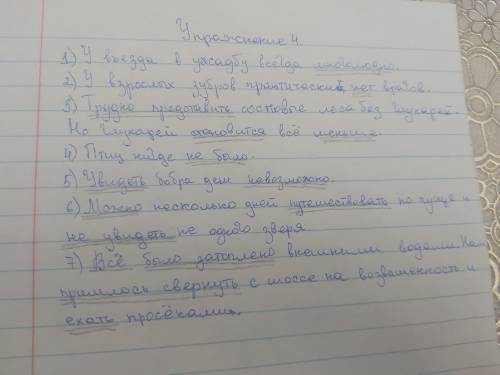 Упражнение 4.
1) У въезда в усадбу всегда многолюдно.
2) У взрослых зубров практический нет врагов.
3) Трудно представить сосновые леса без глухарей.
Но глухарей становится всё меньше.
4) Птиц нигде не было.
5) Увидеть бобра днем невозможно.
6) Можно несколько дней путешествовать по пуще и
не увидеть не одного зверя.
7) Всё было затоплено внешними водами. Нам
пришлось свернуть с шоссе на возвашенность и
ехать просёками.